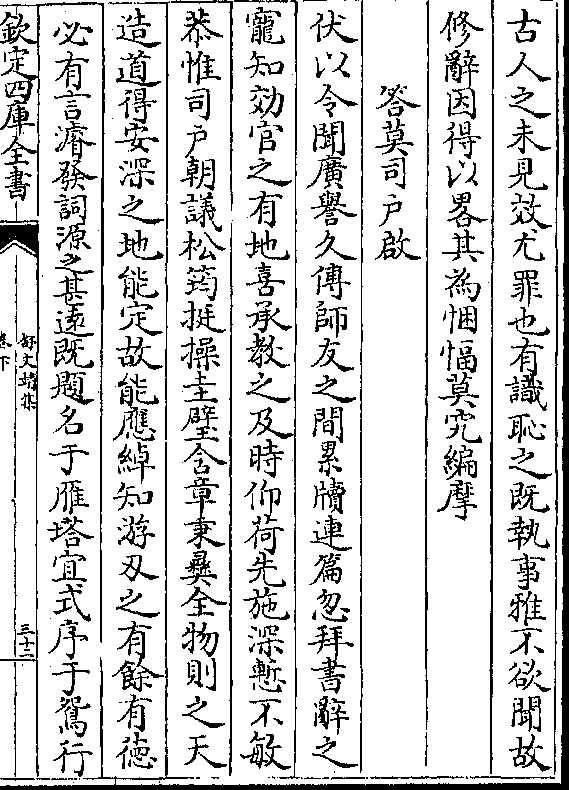 古人之未見效尤罪也有識恥之既執事雅不欲聞故
修辭因得以畧其為悃愊莫究編摩
答莫司户啟
伏以令聞廣譽久傳師友之間累牘連篇忽拜書辭之
寵知効官之有地喜承教之及時仰荷先施深慙不敏
恭惟司户朝議松筠挺操圭璧含章秉彛全物則之天
造道得安深之地能定故能應綽知游刃之有餘有德
必有言濬發詞源之甚逺既題名于雁塔宜式序于鴛行
欽定四庫全書
舒文靖集
卷下
三十二